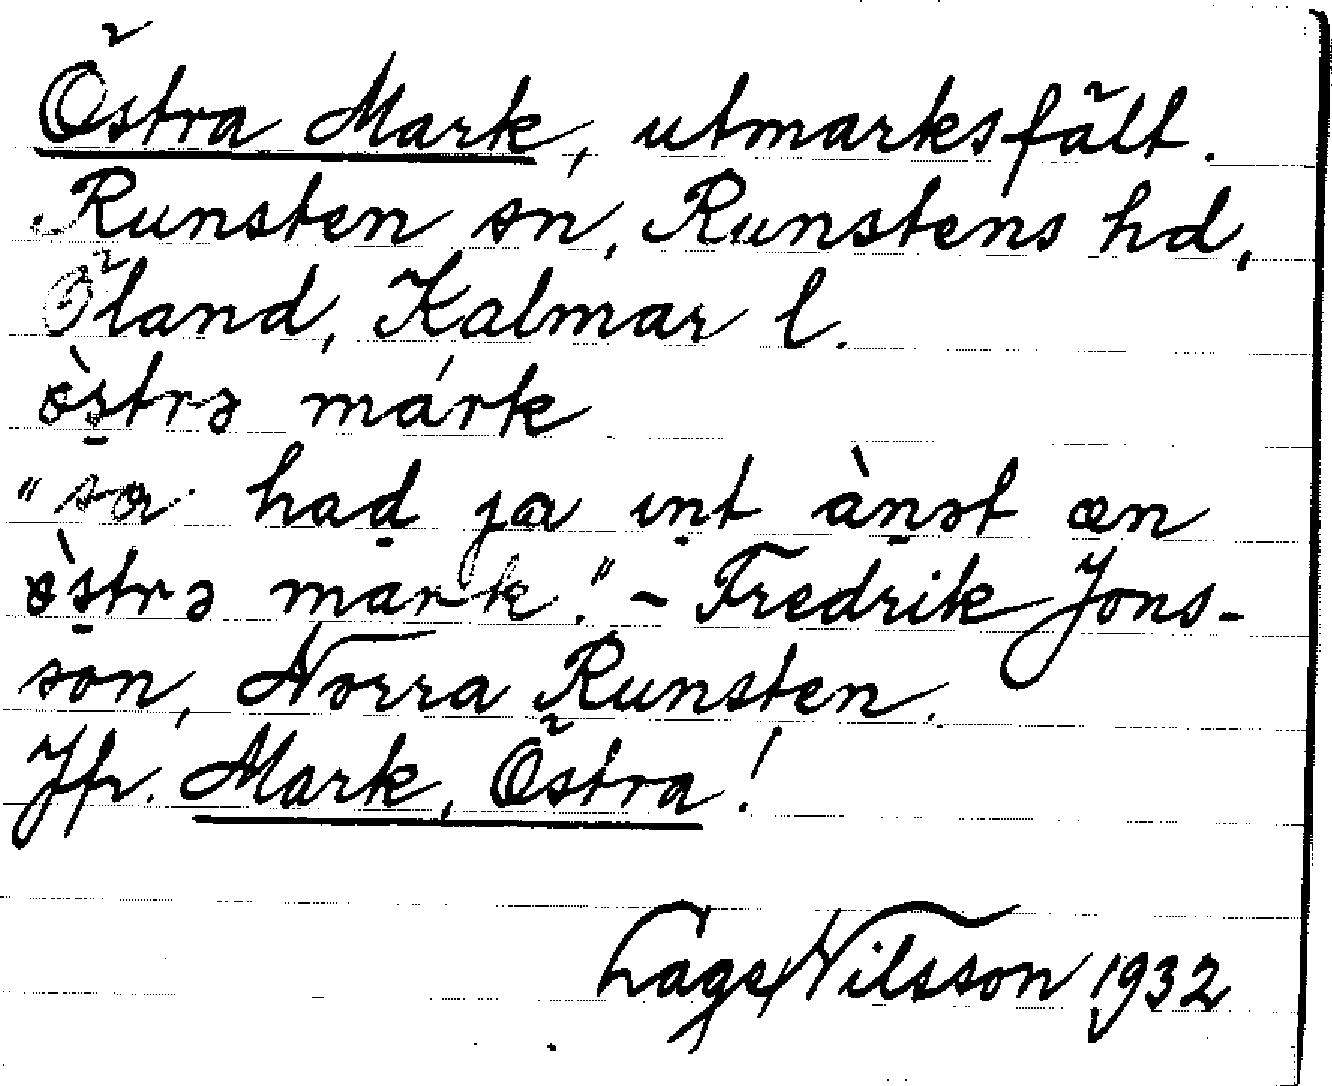 Östra Mark, utmarksfält.
Runsten sn, Runstens hd,
Öland, Kalmar l.
ɵ̀s̱trə márk
"sα haḏ ja ıṉt àṉət æn
ɵ̀s̱trə mark." - Fredrik Jons-
son, Norra Runsten.
Jfr. Mark, Östra!
Lage Nilsson 1932